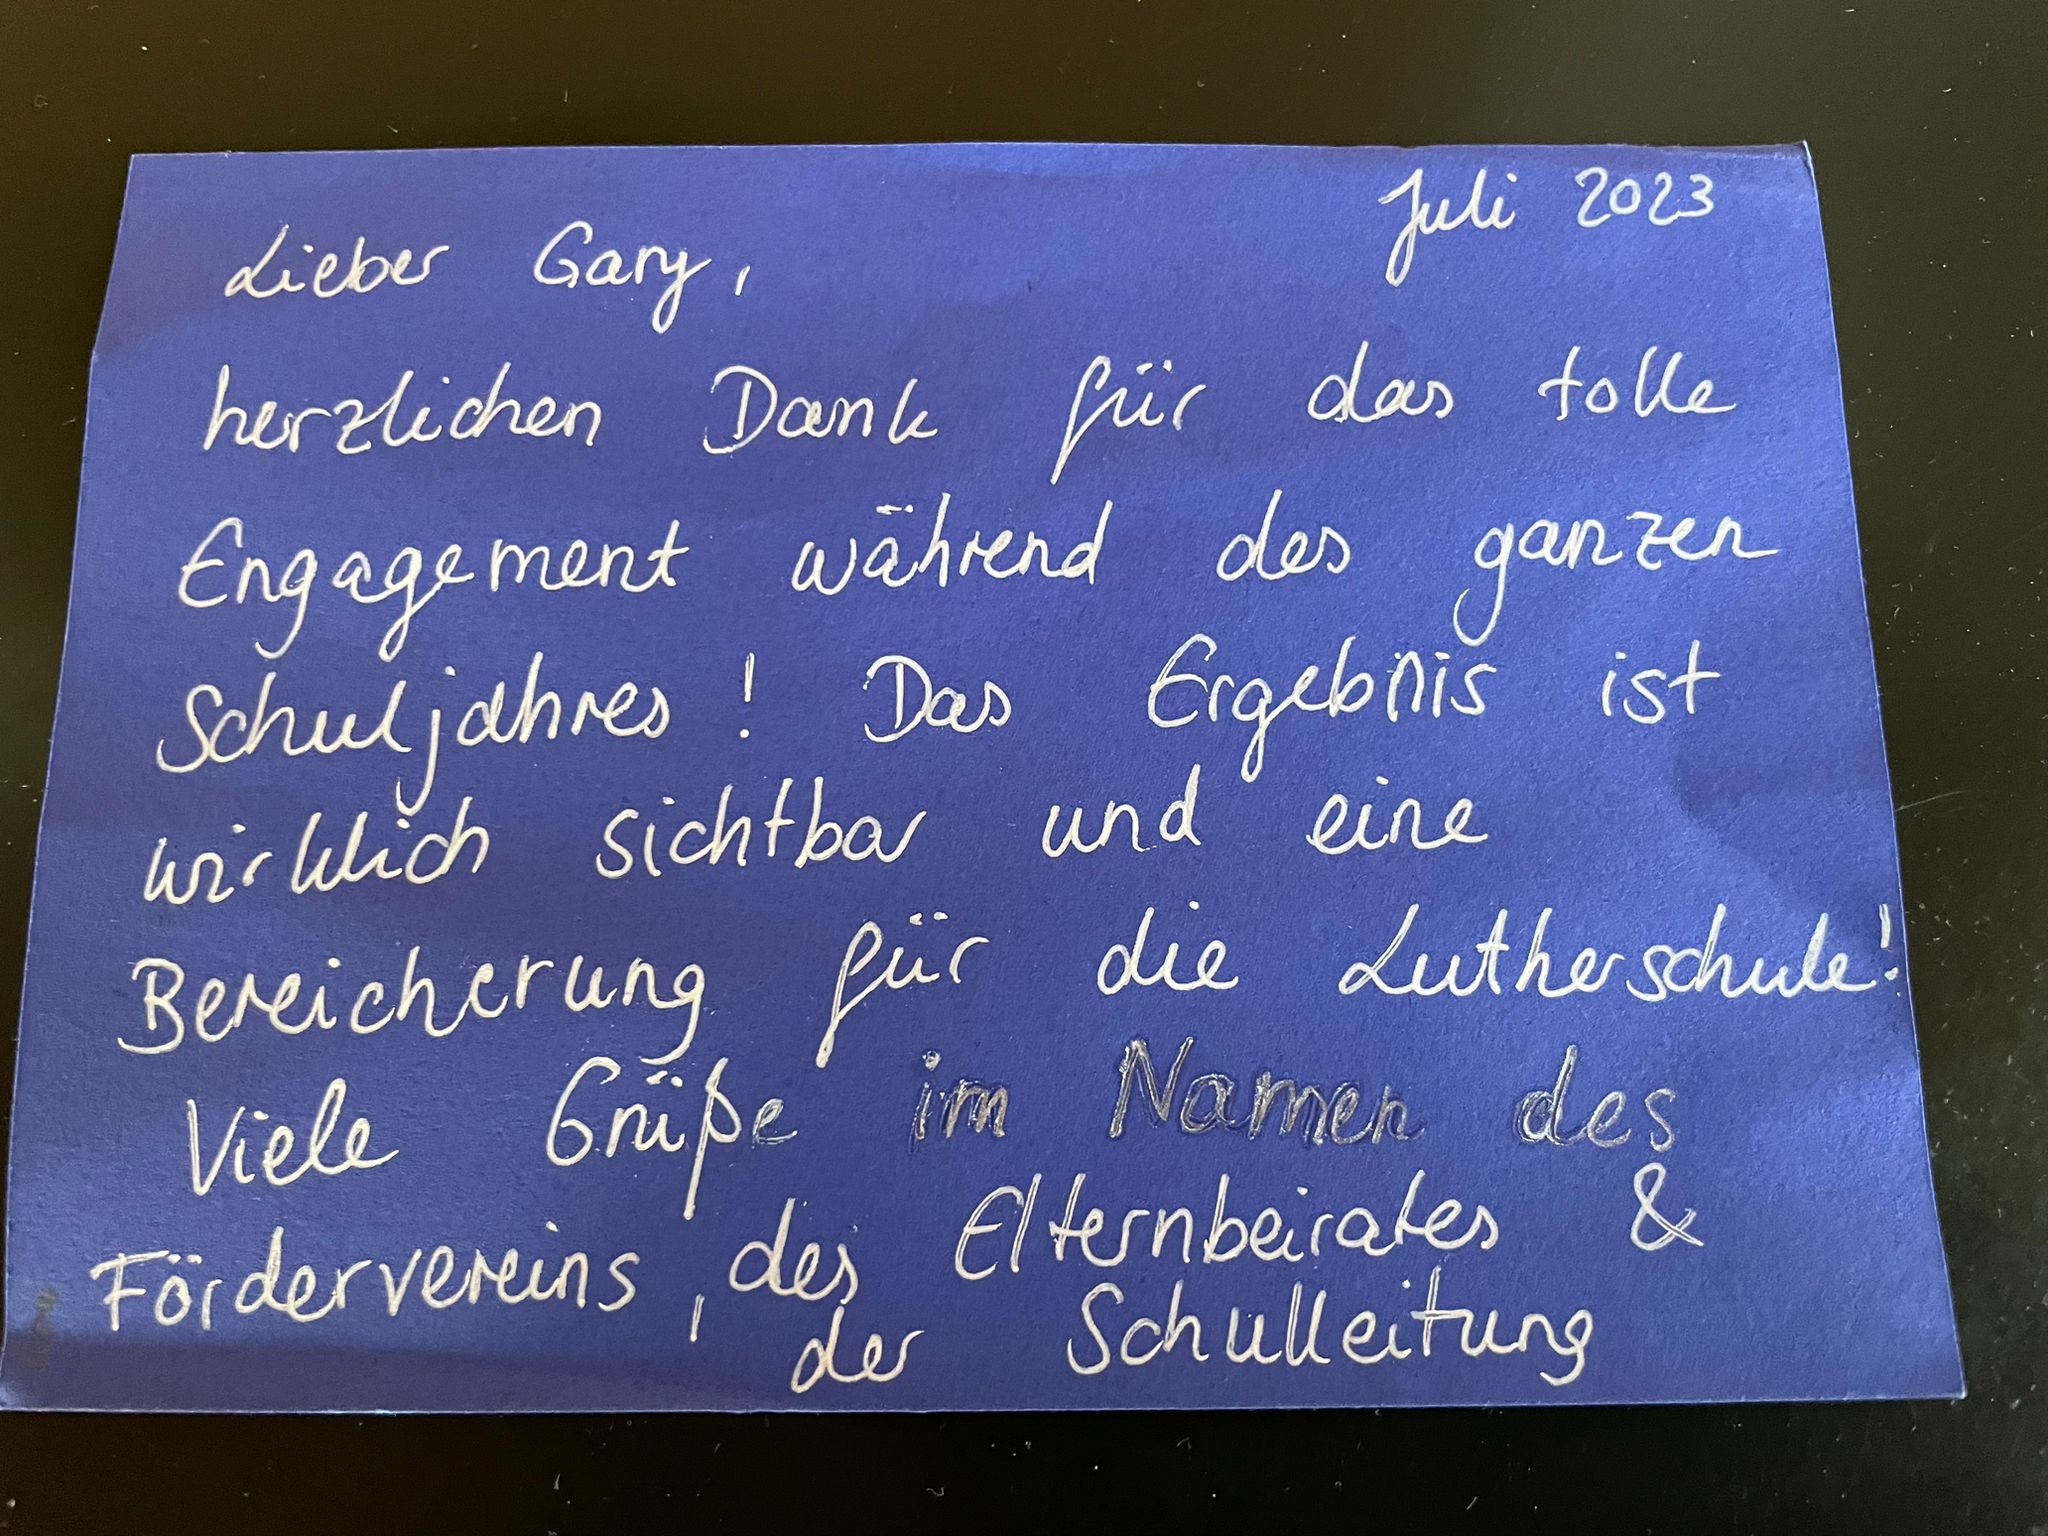 Juli 2023
Lieber Gary,
herzlichen Dank für das tolle
Engagement während des ganzen
Schuljahres! Das Ergebnis ist
wirklich sichtbar und eine
Bereicherung für die Lutherschule!
Viele Grüße im Namen des
Fördervereins, des Elternbeirates &
der Schulleitung